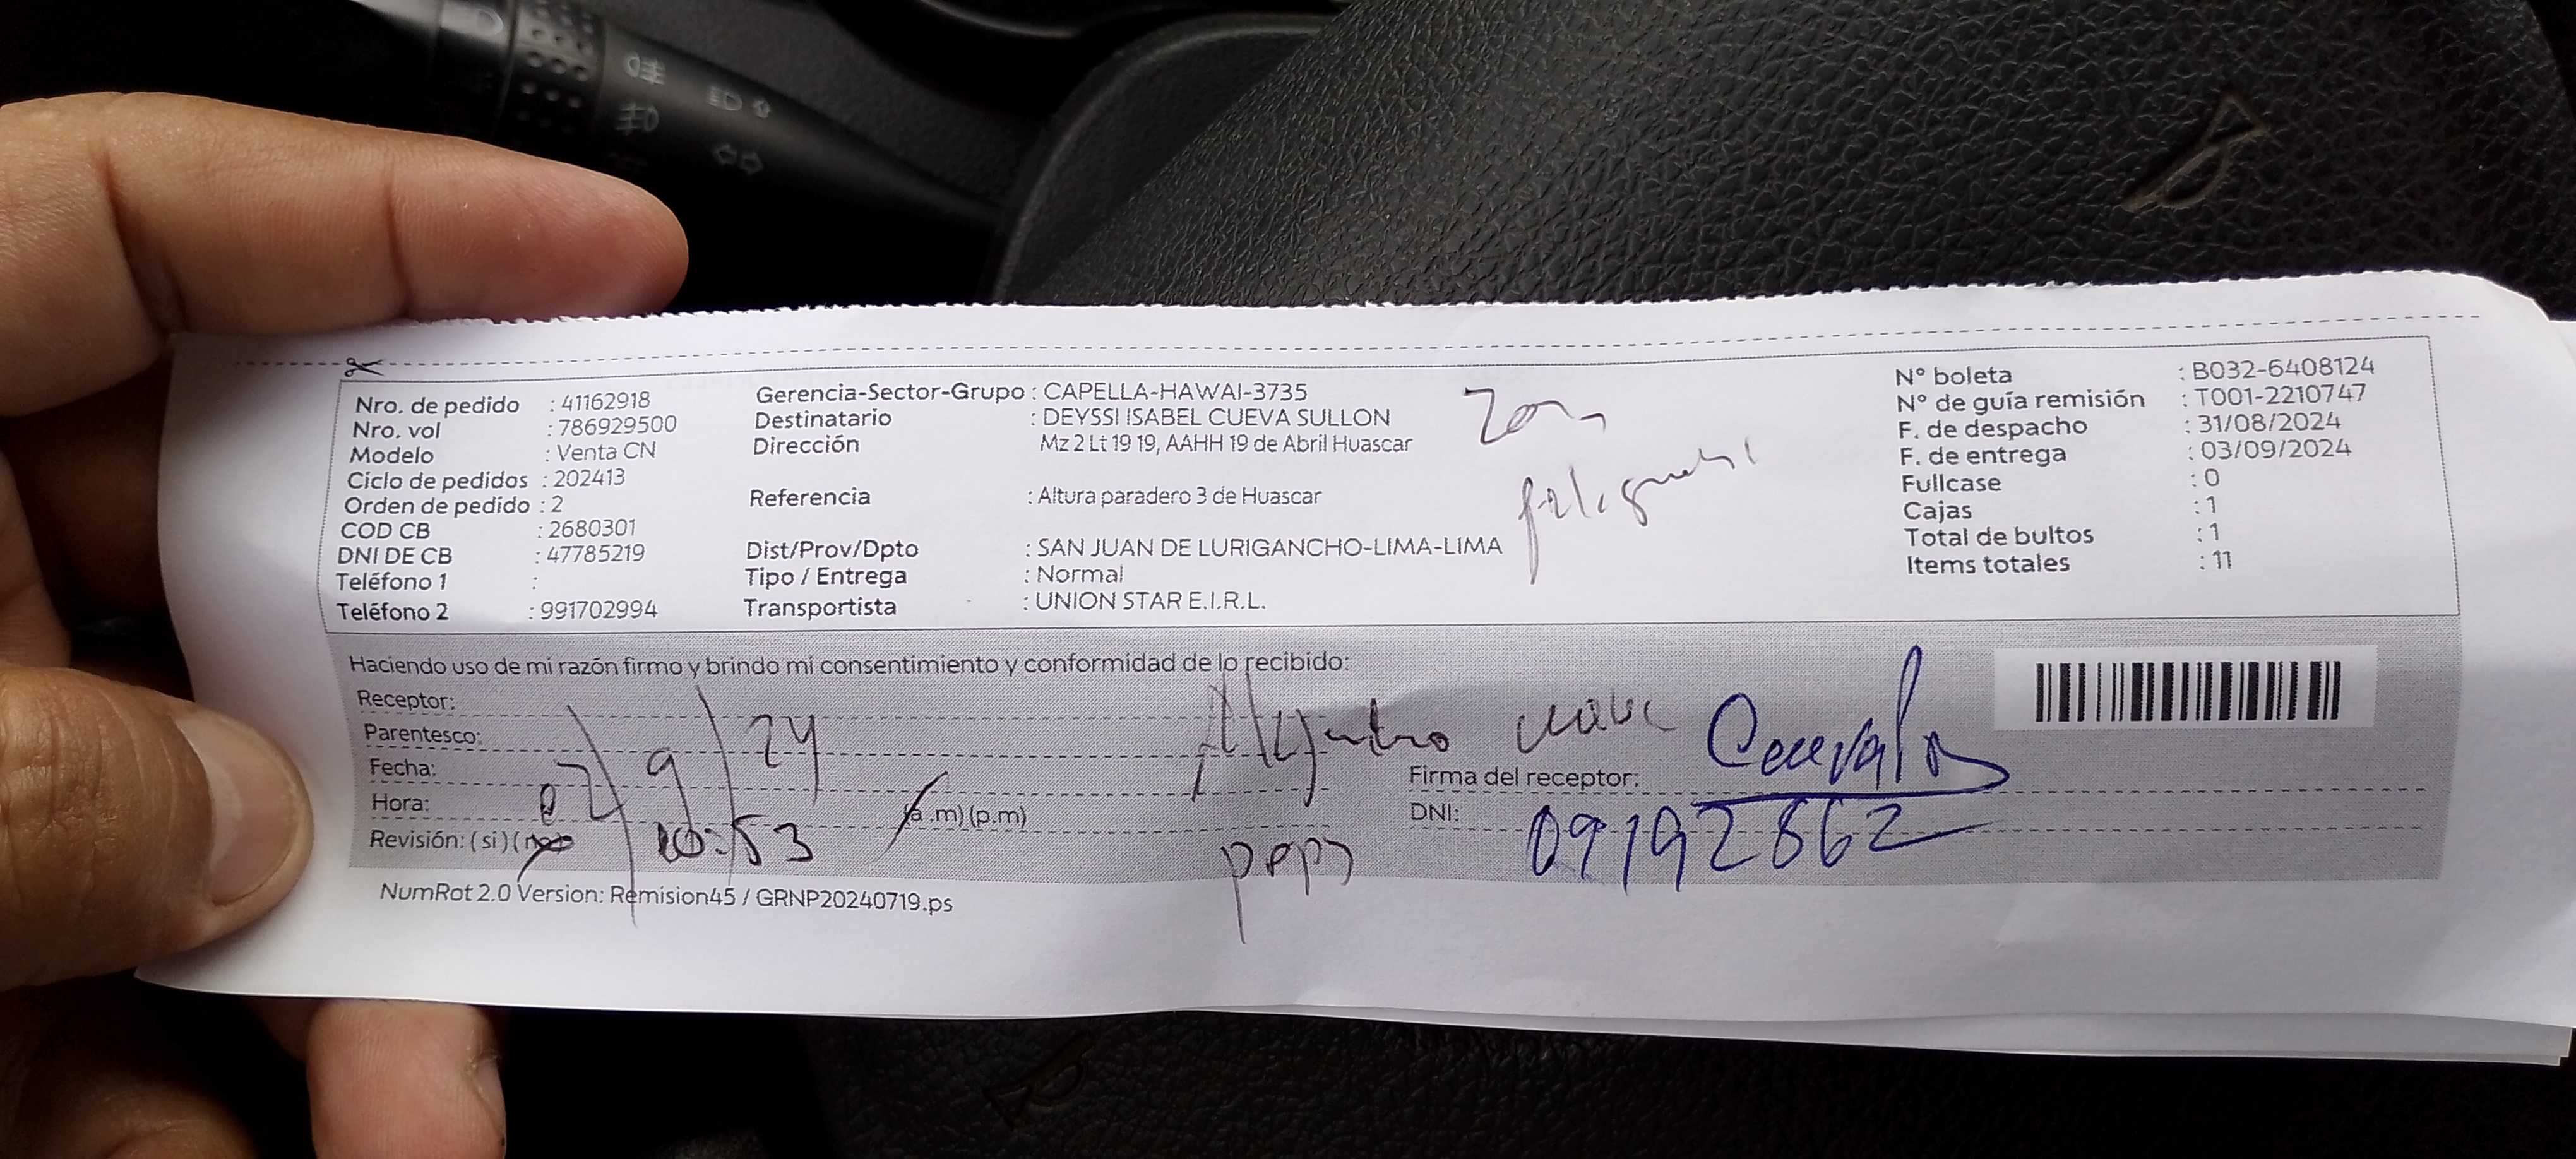 Nro. de pedido : 41162918
Nro. vol : 786929500
Modelo : Venta CN
Ciclo de pedidos : 202413
Orden de pedido : 2
COD CB : 2680301
DNI DE CB : 47785219
Teléfono 1 :
Teléfono 2 : 991702994
Gerencia-Sector-Grupo : CAPELLA-HAWAI-3735
Destinatario : DEYSSI ISABEL CUEVA SULLON
Dirección Mz 2 Lt 19 19, AAHH 19 de Abril Huascar
Referencia : Altura paradero 3 de Huascar
Dist/Prov/Dpto : SAN JUAN DE LURIGANCHO-LIMA-LIMA
Tipo / Entrega : Normal
Transportista : UNION STAR E.I.R.L.
Zona
N° boleta : B032-6408124
N° de guía remisión : T001-2210747
F. de despacho : 31/08/2024
F. de entrega : 03/09/2024
Fullcase : 0
Cajas : 1
Total de bultos : 1
Items totales : 11
Haciendo uso de mi razón firmo y brindo mi consentimiento y conformidad de lo recibido:
Receptor:
Parentesco:
Fecha: 02/9/24
Hora: 10:53 (a.m)(p.m)
Revisión: (si)(no)
Alejandro
papa
Firma del receptor:
DNI: 09192862
NumRot 2.0 Version: Remision45 / GRNP20240719.ps